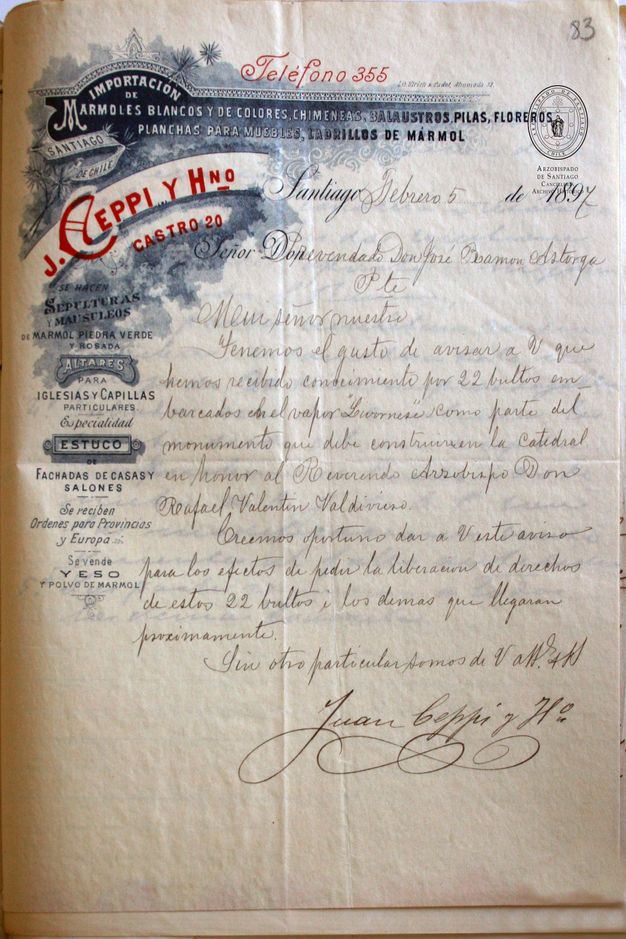 83
Teléfono 355
Lit. Ulrich & Podet, Ahumada 12.
IMPORTACION
DE
MARMOLES BLANCOS Y DE COLORES, CHIMENEAS, BALAUSTROS, PILAS, FLOREROS,
PLANCHAS PARA MUEBLES, LADRILLOS DE MÁRMOL
SANTIAGO
DE CHILE
J. CEPPI Y Hno
CASTRO 20
ARZOBISPADO
DE SANTIAGO
Santiago, Febrero 5 de 1897
Señor Don revendado Don José Ramon Astorga
Pte
Mui señor nuestro
Tenemos el gusto de avisar a V que
hemos recibido conocimiento por 22 bultos em
barcados en el vapor "Livornese" como parte del
monumento que debe construirse en la catedral
en honor al Reverendo Arzobispo Don
Rafael Valentin Valdivieso.
Creemos oportuno dar a V este aviso
para los efectos de pedir la liberacion de derechos
de estos 22 bultos i los demas que llegaran
proximamente.
Sin otro particular somos de V
Juan Ceppi y Ho
SE HACEN
SEPULTURAS
Y MAUSULEOS
DE MARMOL PIEDRA VERDE
Y ROSADA
ALTARES
PARA
IGLESIAS Y CAPILLAS
PARTICULARES.
Especialidad
ESTUCO
DE
FACHADAS DE CASAS Y
SALONES
Se reciben
Ordenes para Provincias
y Europa
Se vende
YESO
Y POLVO DE MARMOL